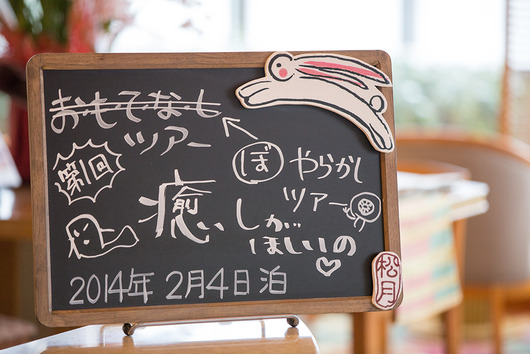 おもてなし
ツアー
ぼやらかし
ツアー
第1回
癒しが
ほしいの♡
2014年 2月4日 泊
松月